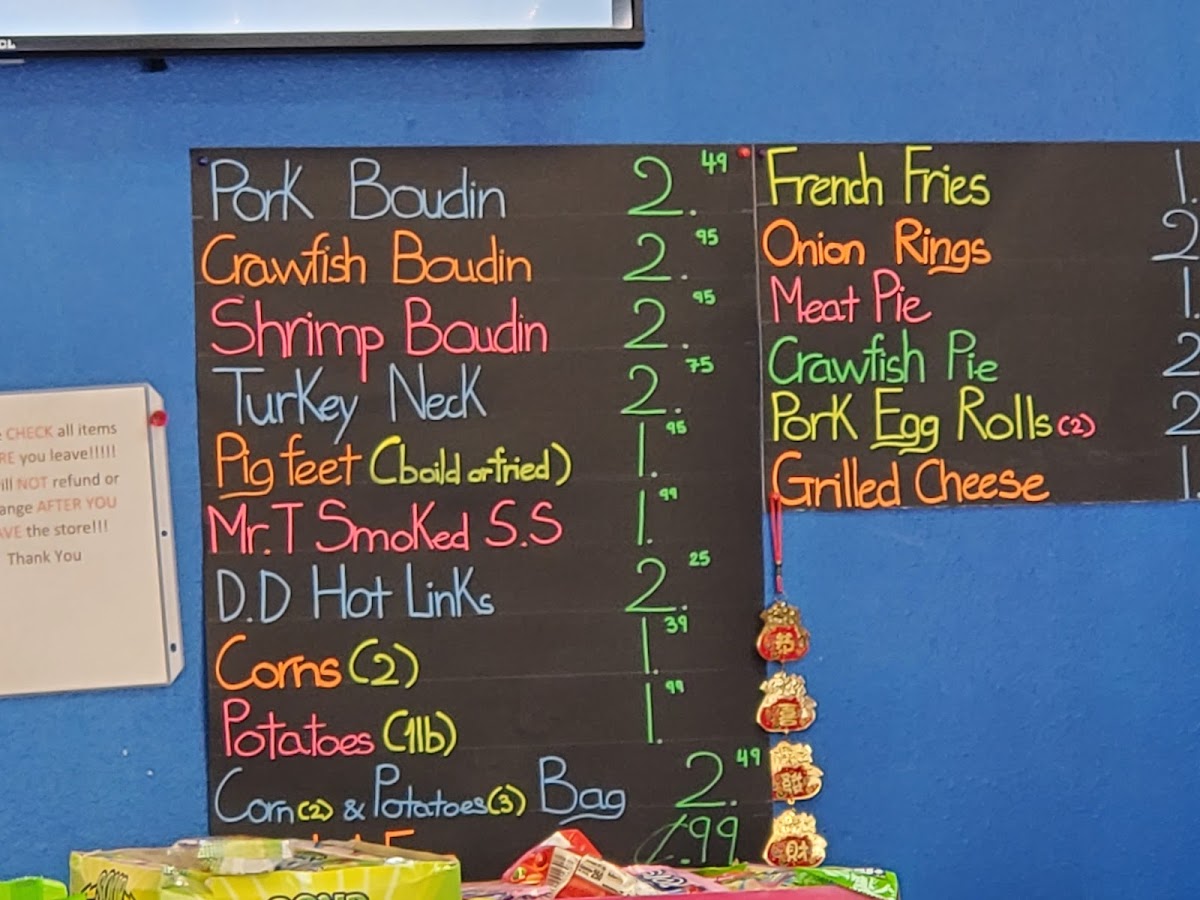 Pork Boudin 2.49
Crawfish Boudin 2.95
Shrimp Boudin 2.95
Turkey Neck 2.75
Pig feet (boild or fried) 1.95
Mr.T Smoked S.S 1.99
D.D Hot Links 2.25
Corns (2) 1.39
Potatoes (1lb) 1.99
Corn (2) & Potatoes (3) Bag 2.49
.99
French Fries 1.
Onion Rings 2
Meat Pie 1.
Crawfish Pie 2
Pork Egg Rolls (2) 2
Grilled Cheese 1
CHECK all items
RE you leave!!!!!
ill NOT refund or
ange AFTER YOU
AVE the store!!!
Thank You
財